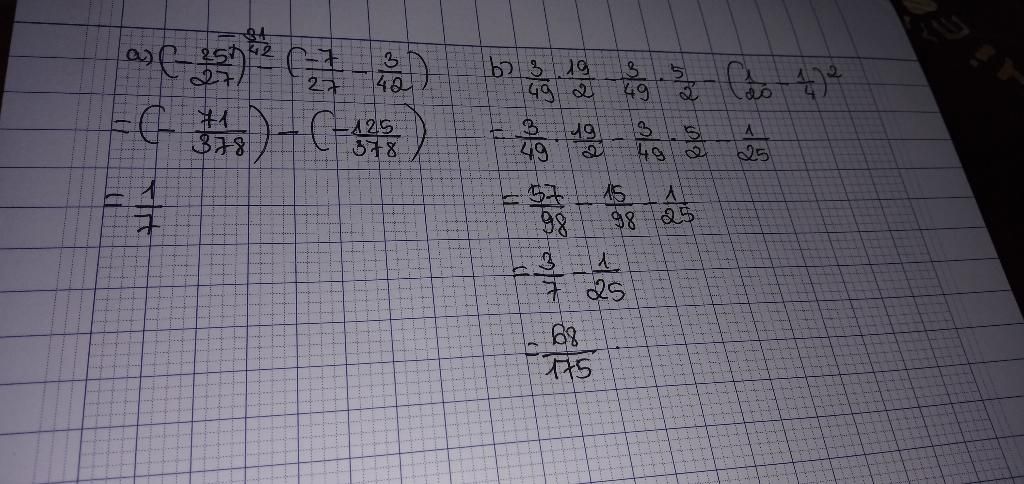 a) (-25/27 - 31/42) - (-7/27 - 3/42)
= (- 71/378) - (-125/378)
= 1/7
b) 3/49 . 19/2 - 3/49 . 5/2 - (1/20 - 1/4)²
= 3/49 . 19/2 - 3/49 . 5/2 - 1/25
= 57/98 - 15/98 - 1/25
= 3/7 - 1/25
= 68/175